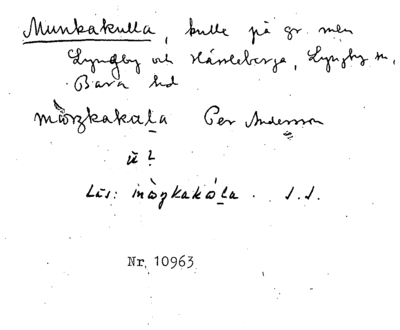 Munkakulla, kulle på gr. mellan
Lyngby och Hässleberga, Lyngby sn,
Bara hd
mòŋkakala Per Andersson
ū ?
Läs: mòŋkakòla. S.S.
Nr. 10963